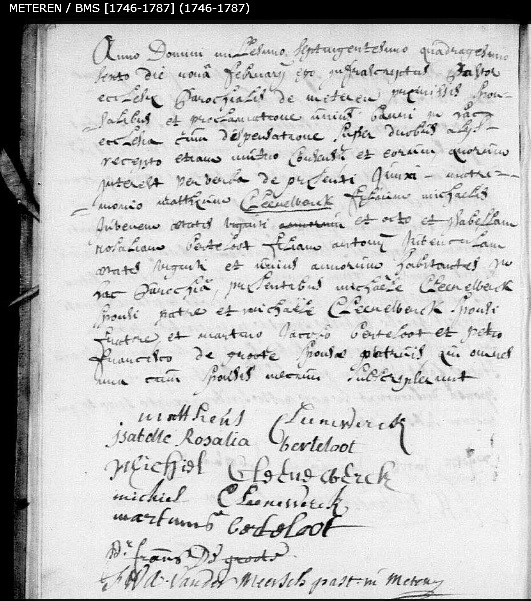 METEREN / BMS [1746-1787] (1746-1787)
Anno Domini millesimo septingentesimo quadragesimo
sexto die nona february ego infrascriptus Pastor
ecclesiæ Parochialis de meteren præmissis spon-
salibus et proclamatione unius banni in hac
ecclesia cum dispensatione super duobus alys
recepto etiam mutuo consensu et eorum quorum
interest per verba de præsenti junxi matri-
monio matthæum Cleenewerck filium michaelis
Juvenem ætatis viginti annorum et octo et Isabellam
rosaliam berteloot filiam antony Juvenculam
ætatis viginti et unius annorum habitantes in
hac Parochia, præsentibus michaele Cleenewerck
sponsi patre et michaele Cleenewerck sponsi
fratre et martino Jacobo berteloot et petro
francisco de groote sponsæ patruis qui omnes
una cum sponsis mecum subscripserunt
mattheus Cleenewerck
isabelle Rosalia berteloot
Michiel Cleenewerck
michiel Cleenewerck
martinus berteloot
frans De groote
Vander Meersch past. in Meteren